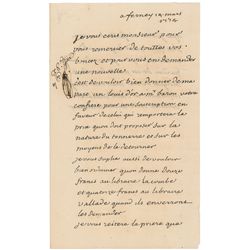 a ferney 14 mars
1774
je vous ecris monsieur pour
vous remercier de touttes vos
bontez et pour vous en demander
une nouvelle
c'est de vouloir bien donner de ma
part un louis d'or a mr baron votre
confrere pour une souscription en
faveur de celui qui remportera le
prix quon doit proposer sur la
nature du tonnerre et sur les
moyens de le detourner
je vous suplie aussi de vouloir
bien ordonner quon donne douze
francs au libraire la combe
et quatorze francs au libraire
vallade quand ils enverront
les demander
je vous reitere la priere que